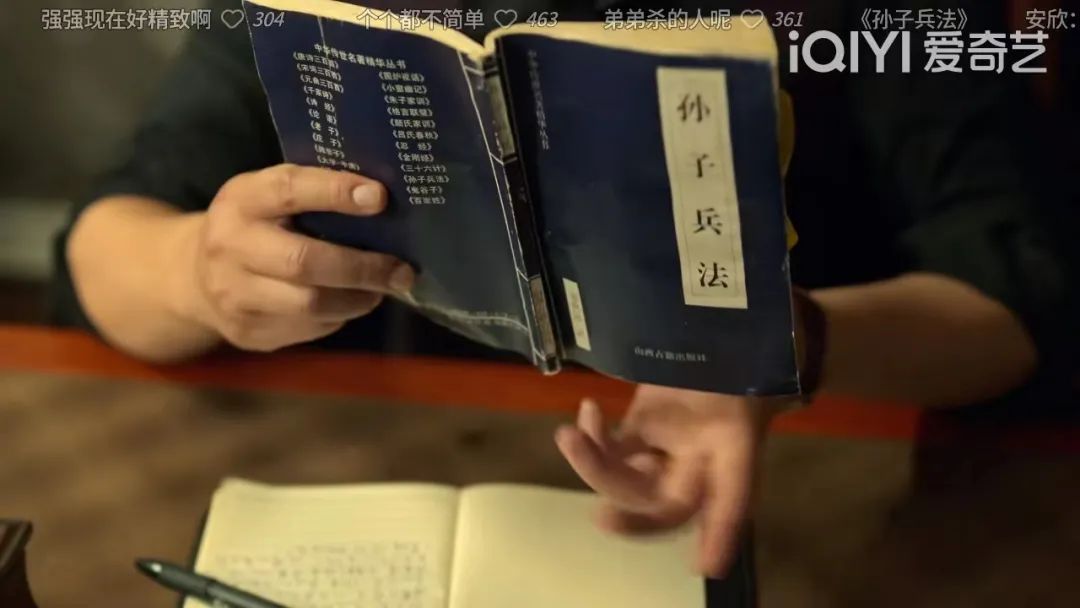 强强现在好精致啊 ♡ 304
个个都不简单 ♡ 463
弟弟杀的人呢 ♡ 361
《孙子兵法》
安欣:
iQIYI 爱奇艺
中华传世名著精华丛书
《唐诗三百首》
《宋词三百首》
《元曲三百首》
《千家诗》
《诗经》
《论语》
《老子》
《庄子》
《围炉夜话》
《小窗幽记》
《朱子家训》
《格言联璧》
《颜氏家训》
《吕氏春秋》
《忍经》
《金刚经》
《三十六计》
《孙子兵法》
《鬼谷子》
《百家姓》
中华传世名著精华丛书
孙子兵法
山西古籍出版社